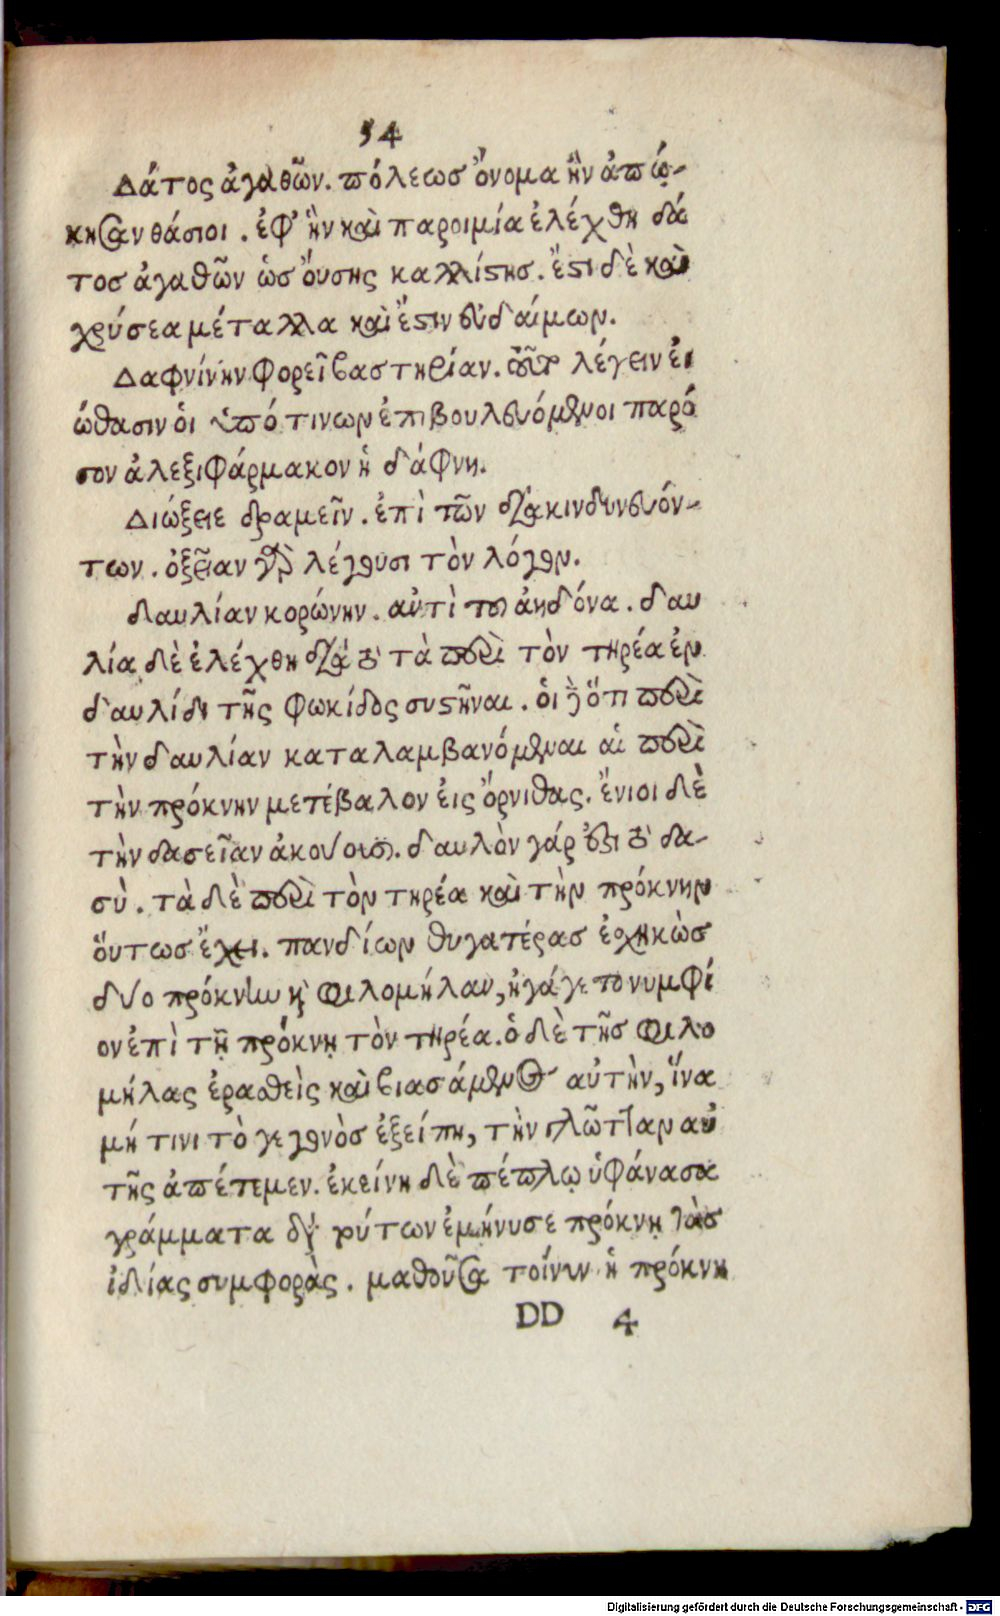 54
Δάτος ἀγαθῶν. πόλεως ὄνομα ἣν ἀπῴ-
κησαν θάσιοι. ἐφ' ἣν καὶ παροιμία ἐλέχθη δά
τος ἀγαθῶν ὡς ὄυσης καλλίςης. ἔςι δὲ καὶ
χρύσεα μέταλλα καὶ ἔςιν εὐδαίμων.
Δαφνίνην φορεῖ βαστηρίαν. οὕτω λέγειν ἐι
ώθασιν ὁι ὑπό τινων ἐπιβουλευόμενοι παρό
σον ἀλεξιφάρμακον ἡ δάφνη.
Διώξειε δραμεῖν. ἐπὶ τῶν διακινδυνευόν-
των. ὀξεῖαν γὰρ λέγουσι τὸν λόγον.
δαυλίαν κορώνην. αὐτὶ τοῦ ἀηδόνα. δαυ
λία δὲ ἐλέχθη διὰ τὸ τὰ περὶ τὸν τηρέα ἐν
δαυλίδι τῆς φωκίδος συςῆναι. ὁι δὲ ὅτι περὶ
τὴν δαυλίαν καταλαμβανόμεναι αἱ περὶ
τὴν πρόκνην μετέβαλον ἐις ὄρνιθας. ἔνιοι δὲ
τὴν δασεῖαν ἀκούουσι. δαυλὸν γάρ ἐςι τὸ δα-
σὺ. τὰ δὲ περὶ τὸν τηρέα καὶ τὴν πρόκνην
ὅυτως ἔχει. πανδίων θυγατέρας ἐσχηκὼς
δύο πρόκνην καὶ φιλομήλαν, ἠγάγετο νυμφί
ον ἐπὶ τῇ πρόκνῃ τὸν τηρέα. ὁ δὲ τῆς φιλο
μήλας ἐρασθεὶς καὶ βιασάμενος αὐτὴν, ἵνα
μή τινι τὸ γεγονὸς ἐξείπῃ, τὴν γλῶτταν αὐ
τῆς ἀπέτεμεν. ἐκείνη δὲ πέπλῳ ὑφάνασα
γράμματα δι' ρύτων ἐμήνυσε πρόκνῃ τὰς
ἰδίας συμφορὰς. μαθοῦσα τοίνυν ἡ πρόκνη
DD 4
Digitalisierung gefördert durch die Deutsche Forschungsgemeinschaft - DFG